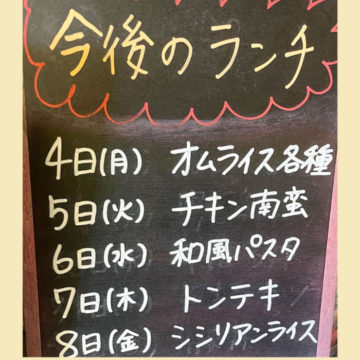 今後のランチ
4日(月) オムライス各種
5日(火) チキン南蛮
6日(水) 和風パスタ
7日(木) トンテキ
8日(金) シシリアンライス